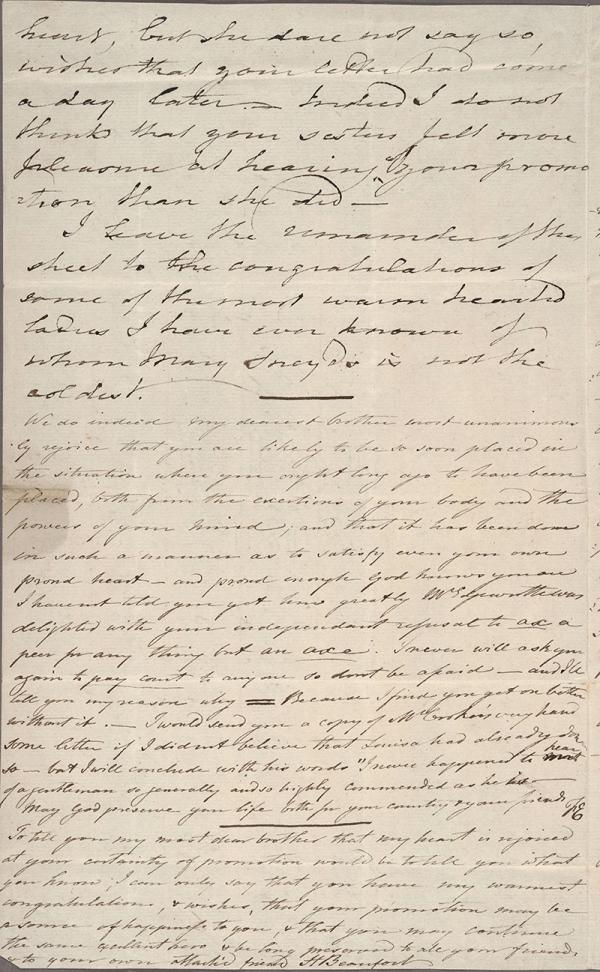 heart, but she dare not say so,
wishes that your letter had come
a day later — Indeed I do not
think that your sisters felt more
pleasure at hearing of your promo
-tion than she did —
I leave the remainder of the
sheet to the congratulations of
some of the most warm hearted
ladies I have ever known of
whom Mary Sneyd is not the
coldest.
We do indeed my dearest brother most unanimous
-ly rejoice that you are likely to be so soon placed in
the situation where you ought long ago to have been
placed, both from the exertions of your body and the
powers of your mind; and that it has been done
in such a manner as to satisfy even your own
proud heart — and proud enough God knows you are
I have not told you yet how greatly Mr Edgeworth was
delighted with your independant refusal to ax a
peer for any thing but an axe. I never will ask you
again to pay court to any one so dont be afraid — and I'll
tell you my reason why = Because I find you get on better
without it. — I would send you a copy of Mr Croker's very hand
some letter if I did not believe that Louisa had already done
so — but I will conclude with his words "I never happened to hear
of a gentleman so generally and so highly commended as he is —
May God preserve your life both for your country & your friends FE
To tell you my most dear brother that my heart is rejoiced
at your certainty of promotion would be to tell you what
you know; I can only say that you have my warmest
congratulations, & wishes, that your promotion may be
a source of happiness to you, & that you may continue
the same excellent hero & be long preserved to all your friends
& to your own attach'd friend H Beaufort